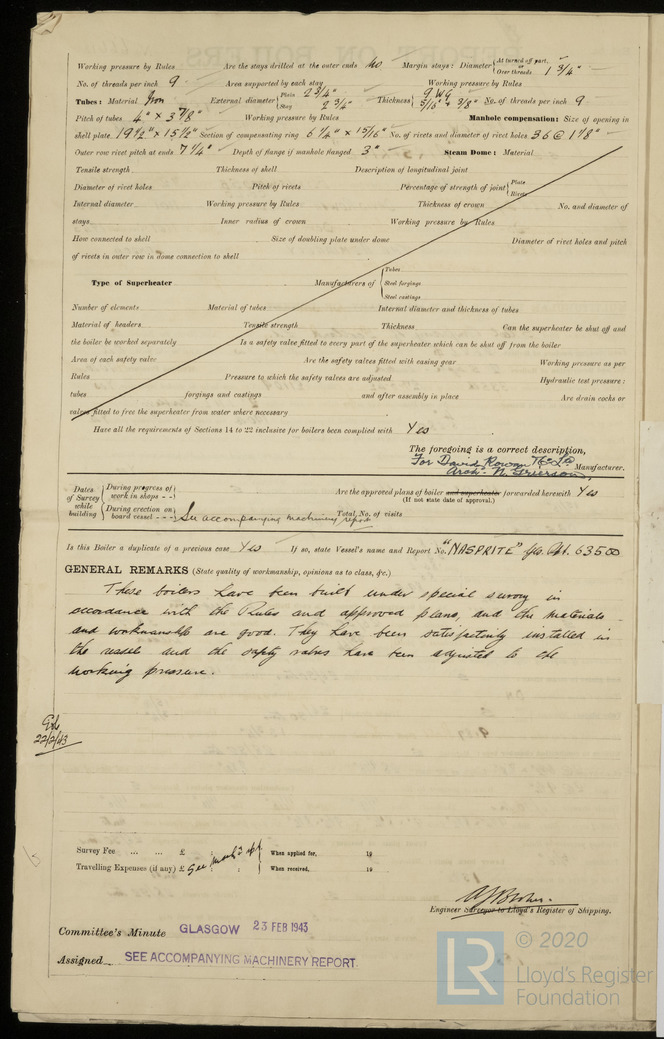 Working pressure by Rules Are the stays drilled at the outer ends No Margin stays: Diameter { At turned off part, or Over threads 1 3/4"
No. of threads per inch 9 Area supported by each stay Working pressure by Rules
Tubes: Material Iron External diameter { Plain 2 3/4" Stay 2 3/4" Thickness { 9 WG 5/16" & 3/8" No. of threads per inch 9
Pitch of tubes 4" x 3 7/8" Working pressure by Rules Manhole compensation: Size of opening in
shell plate 19 1/2" x 15 1/2" Section of compensating ring 6 1/4" x 15/16" No. of rivets and diameter of rivet holes 36 @ 1 1/8"
Outer row rivet pitch at ends 7 1/4" Depth of flange if manhole flanged 3" Steam Dome: Material
Tensile strength Thickness of shell Description of longitudinal joint
Diameter of rivet holes Pitch of rivets Percentage of strength of joint { Plate Rivets
Internal diameter Working pressure by Rules Thickness of crown No. and diameter of
stays Inner radius of crown Working pressure by Rules
How connected to shell Size of doubling plate under dome Diameter of rivet holes and pitch
of rivets in outer row in dome connection to shell
Type of Superheater Manufacturers of { Tubes Steel forgings Steel castings
Number of elements Material of tubes Internal diameter and thickness of tubes
Material of headers Tensile strength Thickness Can the superheater be shut off and
the boiler be worked separately Is a safety valve fitted to every part of the superheater which can be shut off from the boiler
Area of each safety valve Are the safety valves fitted with easing gear Working pressure as per
Rules Pressure to which the safety valves are adjusted Hydraulic test pressure:
tubes forgings and castings and after assembly in place Are drain cocks or
valves fitted to free the superheater from water where necessary
Have all the requirements of Sections 14 to 22 inclusive for boilers been complied with Yes
The foregoing is a correct description,
For David Rowan & Co Ld
Arch. W. Grierson, Manufacturer.
Dates of Survey while building { During progress of work in shops - - } Are the approved plans of boiler and superheater forwarded herewith Yes
(If not state date of approval.)
{ During erection on board vessel - - - } See accompanying machinery report Total No. of visits
Is this Boiler a duplicate of a previous case Yes If so, state Vessel's name and Report No. "NASPRITE" Gls. Rpt. 63500
GENERAL REMARKS (State quality of workmanship, opinions as to class, &c.)
These boilers have been built under special survey in
accordance with the Rules and approved plans, and the materials
and workmanship are good. They have been satisfactorily installed in
the vessel and the safety valves have been adjusted to the
working pressure.
22/2/43
Survey Fee ... ... £ : : When applied for, 19
Travelling Expenses (if any) £ See mach'y rpt : : When received, 19
Engineer Surveyor to Lloyd's Register of Shipping.
Committee's Minute GLASGOW 23 FEB 1943
Assigned SEE ACCOMPANYING MACHINERY REPORT.
LR © 2020
Lloyd's Register
Foundation